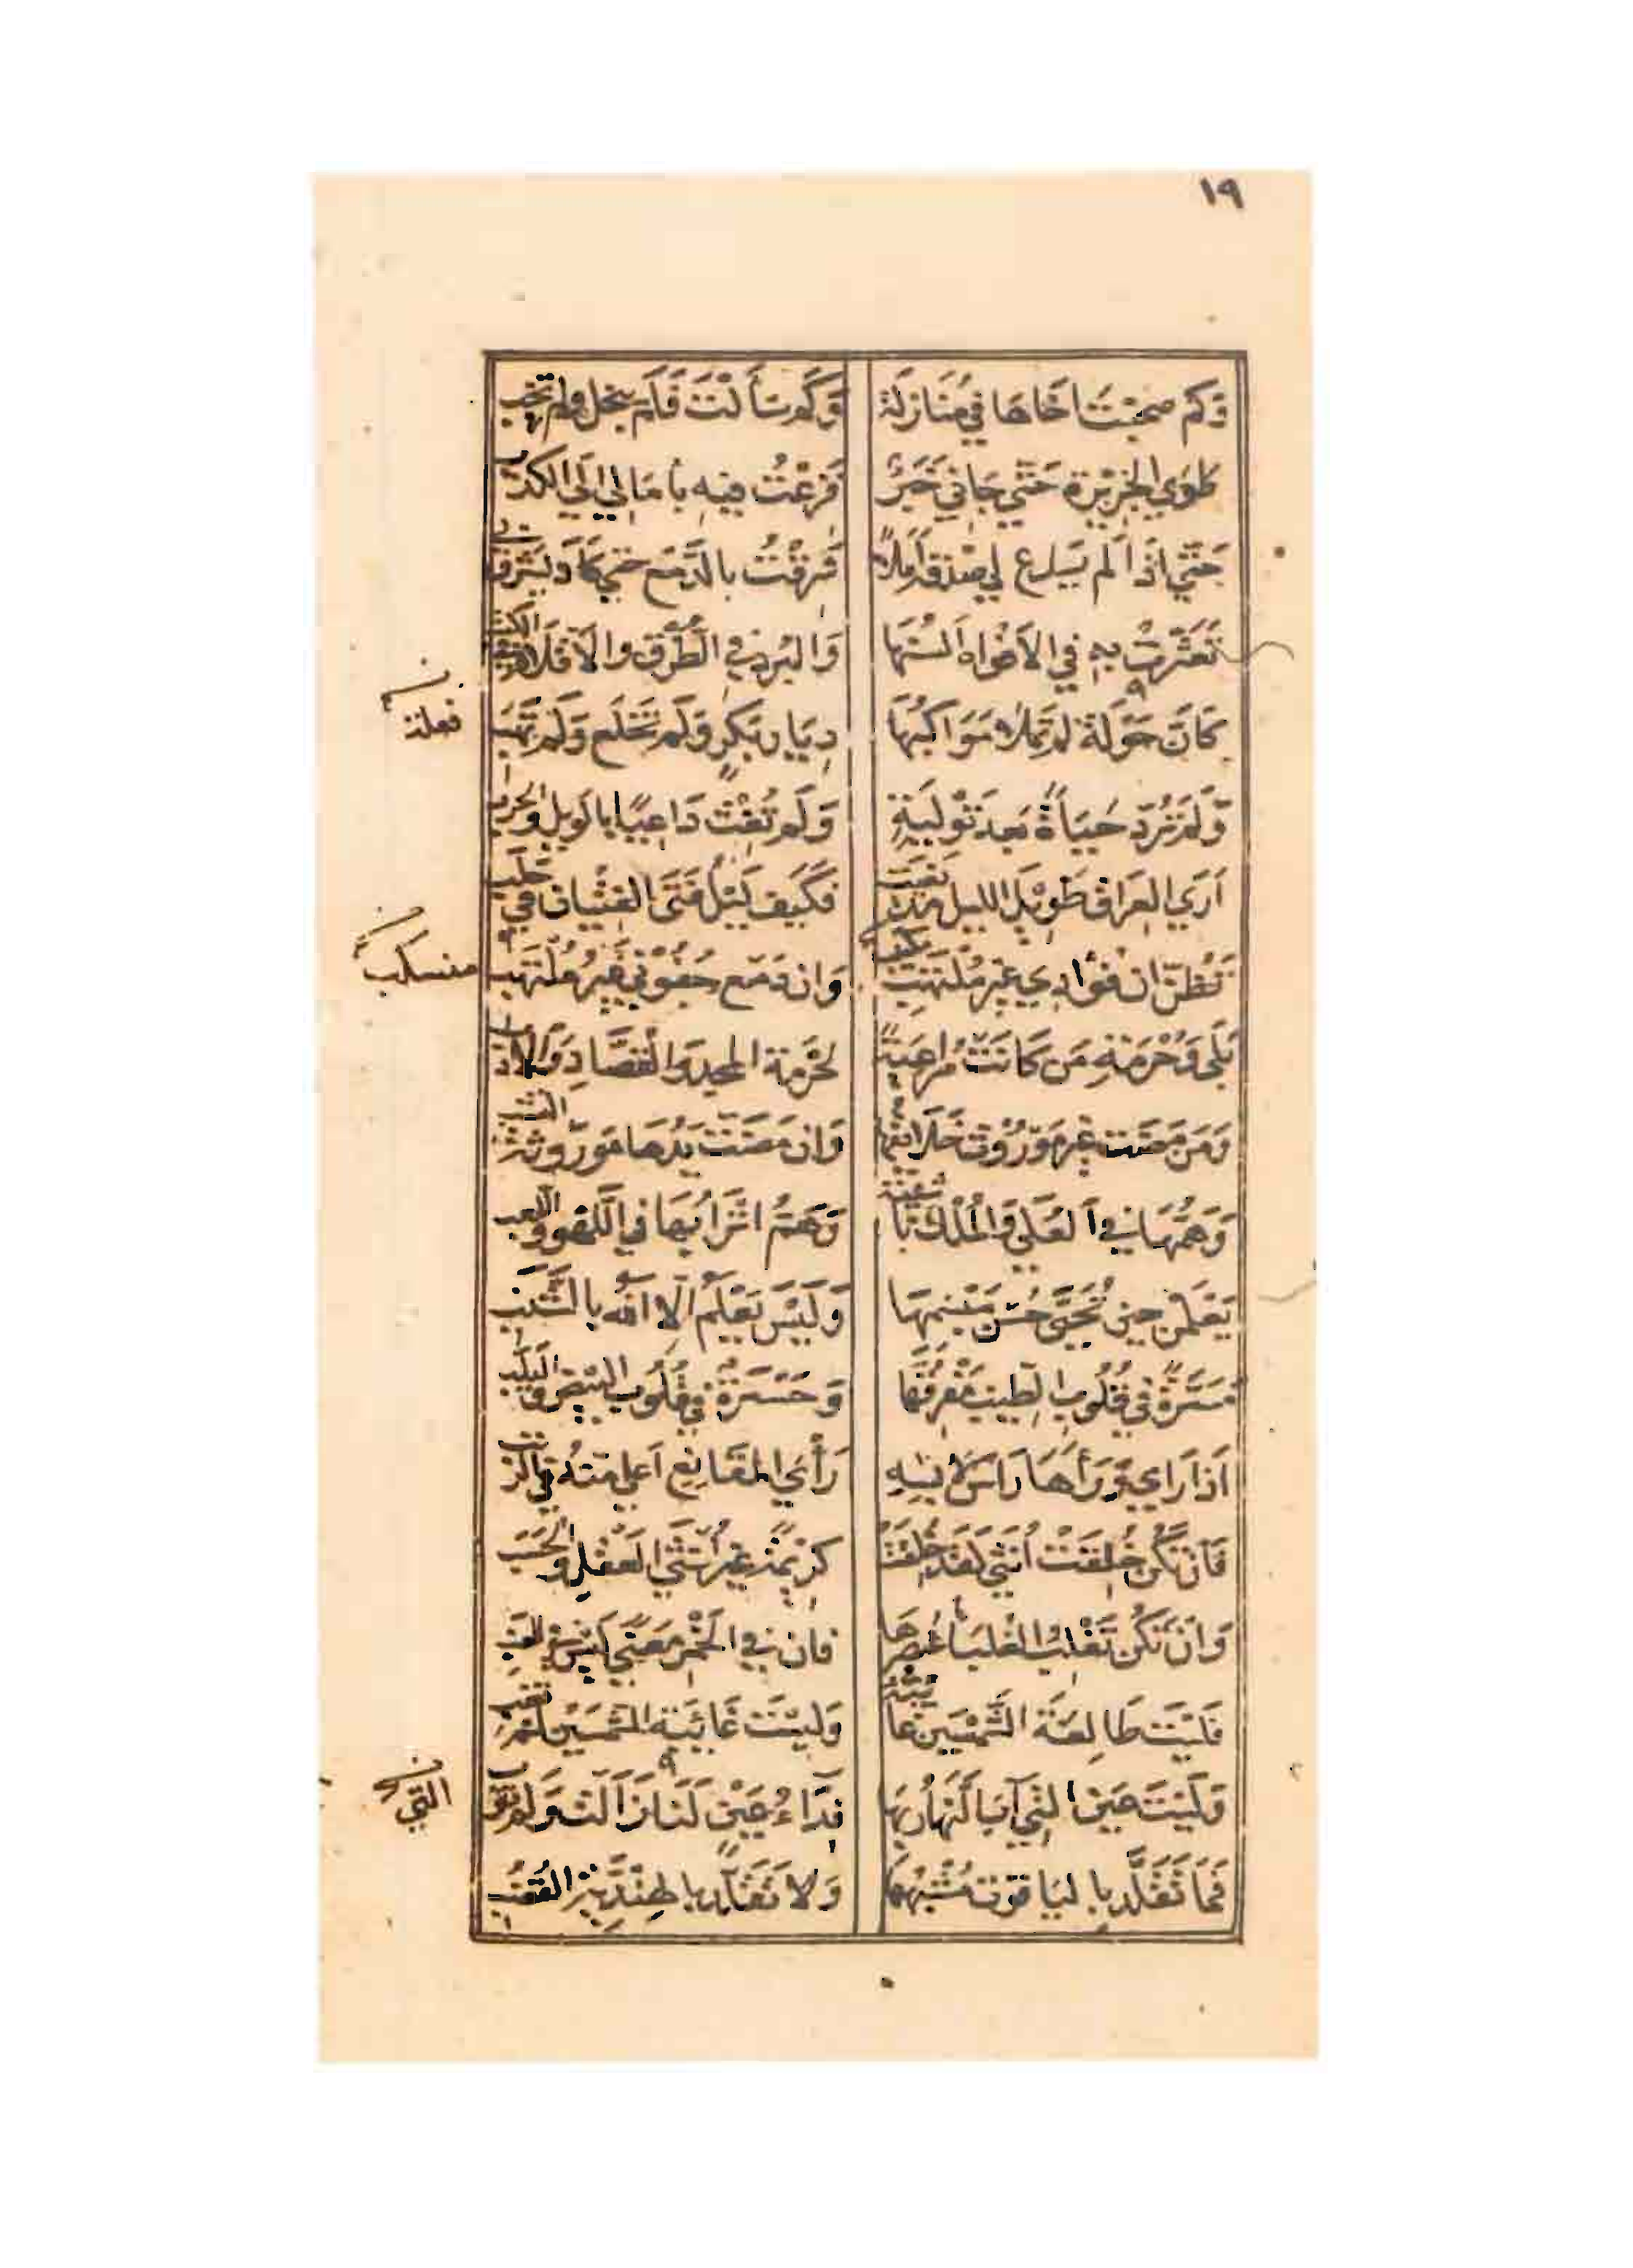 ١٩
وَكم صحبْتَ اخَاهَا في مُنَازلة وَكَم سَأَلْتَ فَلَمْ يبخل ولم تخب
طَوَي الجَزِيْرَة حَتَّي جَاني خَبَرٌ فَزِعْتُ فِيْهِ بأمَالي إلَي الكَذب
حَتَّي اذَا لَم يَدع لي صدْقه أملاً شَرقْتُ بالدَّمْع حَتي كَادَ يَشْرق بي
تَعَثَّرتْ بِهِ في الأفْواه ألسُنهَا وَالبُرد في الطُّرْق والأقلام في الكتب
كَأنَّ خَوْلَة لم تَملأ مَوَاكبُهَا دِيَار بَكرٍ وَلَم تَخْلَع وَلَم تَهَب
فعلة
وَلَم تَرُدّ حَيَاةً بَعدَ تَوْلِيَةٍ وَلَم تُغِثْ دَاعِيًا بالوَيل والحرب
أرَي العِرَاقَ طَوِيْلَ الليل مذ نعيت فَكَيفَ لَيْلُ فَتَى الفِتْيَانِ في حلب
تَظُنّ ان فُؤَادِي غَيْر مُلْتَهِب وَان دَمْع جُفُوني غَيرُ مُلْتَهب
منسكب
بَلَى وَحُرْمَةِ مَن كَانَتْ مُرَاعِيَةً لحُرْمَة المجدِ وَالقُصَّادِ وَالأدب
وَمَن مَضَت غَير مَوْرُوْث خَلائقُهَا وَان مَضَت يَدُهَا مَوْرُوثة النشب
وَهَمُّهَا في العُلَي وَالمُلْك ناشئة وَهَمُّ اتْرَابِهَا في اللَّهْو واللعب
يَعْلَمْنَ حِينَ تُحَيَّى حُسْنَ مَبْسِمِهَا وَلَيْسَ يَعْلَمُ الا الله بالشَّنَب
مَسَرَّةٌ في قُلُوب الطِّيب مَفْرِقُهَا وَحَسْرَةٌ في قُلُوب البيض واليلب
اذَا رَاي وَرَأهَا رَاسَ لابِسِهِ رَأَي المَقَانِع أعلي منهُ في الرتب
فَان تَكُن خُلِقَتْ أُنْثَي لَقَد خُلِقَتْ كَرِيْمَة غَير أُنْثَي العَقْلِ والحَسَب
وَان تَكُن تَغْلِبُ الغَلبَاءُ عُنصرهَا فان في الخَمْر مَعْني لَيس في العنب
فَلَيْتَ طَالِعَة الشَّمْسَين غائبة وَلَيْتَ غَائِبَة الشَّمْسَين لم تغب
وَلَيْتَ عَينَ التي آبَ النَّهَارُ بِهَا فِدَاءُ عَيْن التي زَالَت وَلَم تؤب
التي
فَمَا تَقَلَّد باليَاقوت مُشْبِهُهَا وَلا تَقَلَّد بالهِنْدِيَّة القُضُب